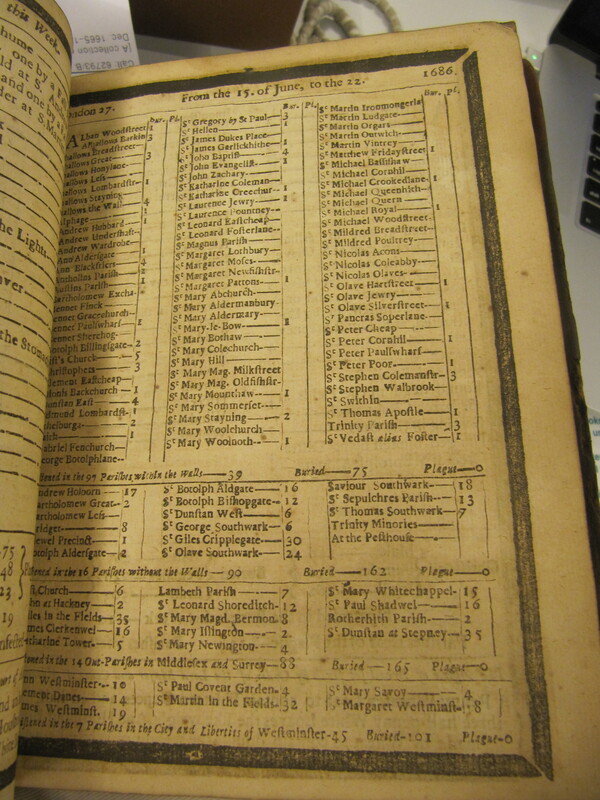 this Week.
From the 15. of June, to the 22. 1686.
ndon 27. Bur. Pl. Bur. Pl. Bur. Pl.
Alban Woodstreet 1
Alhallows Barkin 3
allows Breadstreet
allows Great 3
allows Honylane
allows Less
allows Lombardstr 1
allows Stayning
allows the Wall 4
lphage 1
Andrew Hubbard 1
Andrew Undershaft
Andrew Wardrobe
Ann Aldersgate 1
Ann Blackfriers 4
ntholins Parish 2
ustins Parish 1
artholomew Excha
ennet Finck
ennet Gracechurch
ennet Paulswharf 1
ennet Sherehog
otolph Billingsgate 2
st's Church 5
hristophers 3
lement Eastcheap
onis Backchurch 1
unstan East 4
dmund Lombardst 1
thelburga 2
aith 1
abriel Fenchurch
eorge Botolphlane
Sᵗ Gregory by Sᵗ Paul 3
Sᵗ Hellen 1
Sᵗ James Dukes Place
Sᵗ James Garlickhithe 1
Sᵗ John Baptist 4
Sᵗ John Evangelist 1
Sᵗ John Zachary
Sᵗ Katharine Coleman
Sᵗ Katharine Creechur 1
Sᵗ Laurence Jewry 1
Sᵗ Laurence Pountney
Sᵗ Leonard Eastcheap
Sᵗ Leonard Fosterlane
Sᵗ Magnus Parish
Sᵗ Margaret Lothbury
Sᵗ Margaret Moses
Sᵗ Margaret Newfishstr
Sᵗ Margaret Pattons 1
Sᵗ Mary Abchurch
Sᵗ Mary Aldermanbury
Sᵗ Mary Aldermary
Sᵗ Mary-le-Bow
Sᵗ Mary Bothaw
Sᵗ Mary Colechurch
Sᵗ Mary Hill
Sᵗ Mary Mag. Milkstreet
Sᵗ Mary Mag. Oldfishstr
Sᵗ Mary Mounthaw 1
Sᵗ Mary Sommerset
Sᵗ Mary Stayning 2
Sᵗ Mary Woolchurch
Sᵗ Mary Woolnoth 1
Sᵗ Martin Ironmongerla
Sᵗ Martin Ludgate
Sᵗ Martin Orgars
Sᵗ Martin Outwich
Sᵗ Martin Vintrey
Sᵗ Matthew Fridaystreet 1
Sᵗ Michael Bassishaw
Sᵗ Michael Cornhil
Sᵗ Michael Crookedlane 1
Sᵗ Michael Queenhith
Sᵗ Michael Quern
Sᵗ Michael Royal 1
Sᵗ Michael Woodstreet
Sᵗ Mildred Breadstreet
Sᵗ Mildred Poultrey
Sᵗ Nicolas Acons
Sᵗ Nicolas Coleabby
Sᵗ Nicolas Olaves
Sᵗ Olave Hartstreet 1
Sᵗ Olave Jewry
Sᵗ Olave Silverstreet 1
Sᵗ Pancras Soperlane
Sᵗ Peter Cheap
Sᵗ Peter Cornhil 1
Sᵗ Peter Paulswharf
Sᵗ Peter Poor 1
Sᵗ Stephen Colemanstr 3
Sᵗ Stephen Walbrook
Sᵗ Swithin
Sᵗ Thomas Apostle 1
Trinity Parish 3
Sᵗ Vedast alias Foster 1
stened in the 97 Parishes within the Walls 39 Buried 75 Plague 0
ndrew Holborn 17
artholomew Great 2
artholomew Less
ridget 8
ewel Precinct 1
otolph Aldersgat 2
Sᵗ Botolph Aldgate 16
Sᵗ Botolph Bishopgate 12
Sᵗ Dunstan West 6
Sᵗ George Southwark 6
Sᵗ Giles Cripplegate 30
Sᵗ Olave Southwark 24
Saviour Southwark 18
Sᵗ Sepulchres Parish 13
Sᵗ Thomas Southwark 7
Trinity Minories
At the Pesthouse
stened in the 16 Parishes without the Walls 90 Buried 162 Plague 0
st Church 6
hn at Hackney 2
iles in the Fields 35
mes Clerkenwel 16
atharine Tower 5
Lambeth Parish 7
Sᵗ Leonard Shoreditch 12
Sᵗ Mary Magd. Bermon 8
Sᵗ Mary Islington 2
Sᵗ Mary Newington 4
Sᵗ Mary Whitechappel 15
Sᵗ Paul Shadwel 16
Rotherhith Parish 2
Sᵗ Dunstan at Stepney 35
stened in the 14 Out-Parishes in Middlesex and Surrey 83 Buried 165 Plague 0
nn Westminster 10
ement Danes 14
ames Westminst. 19
Sᵗ Paul Covent Garden 4
Sᵗ Martin in the Fields 32
Sᵗ Mary Savoy 4
Sᵗ Margaret Westminst 18
stened in the 7 Parishes in the City and Liberties of Westminster 45 Buried 101 Plague 0